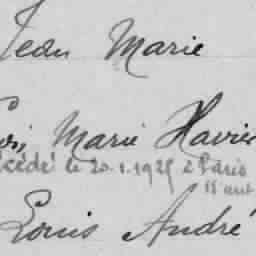 Jean Marie
Marie Xavier
décédé le 20.1.1925 à Paris
18 arrt
Louis André